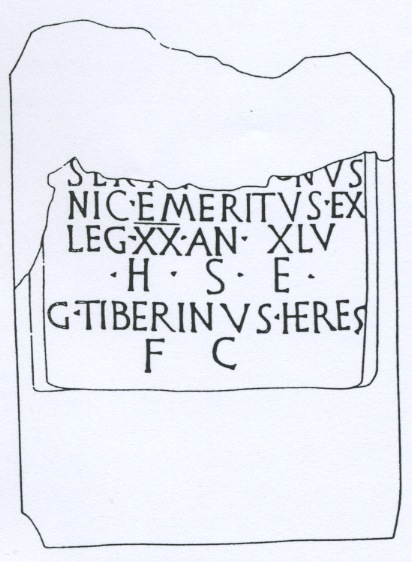 SER ONVS
NIC·EMERITVS·EX
LEG·X̅X̅·AN· XLV
·H · S · E ·
G·TIBERINVS·HERES
F C